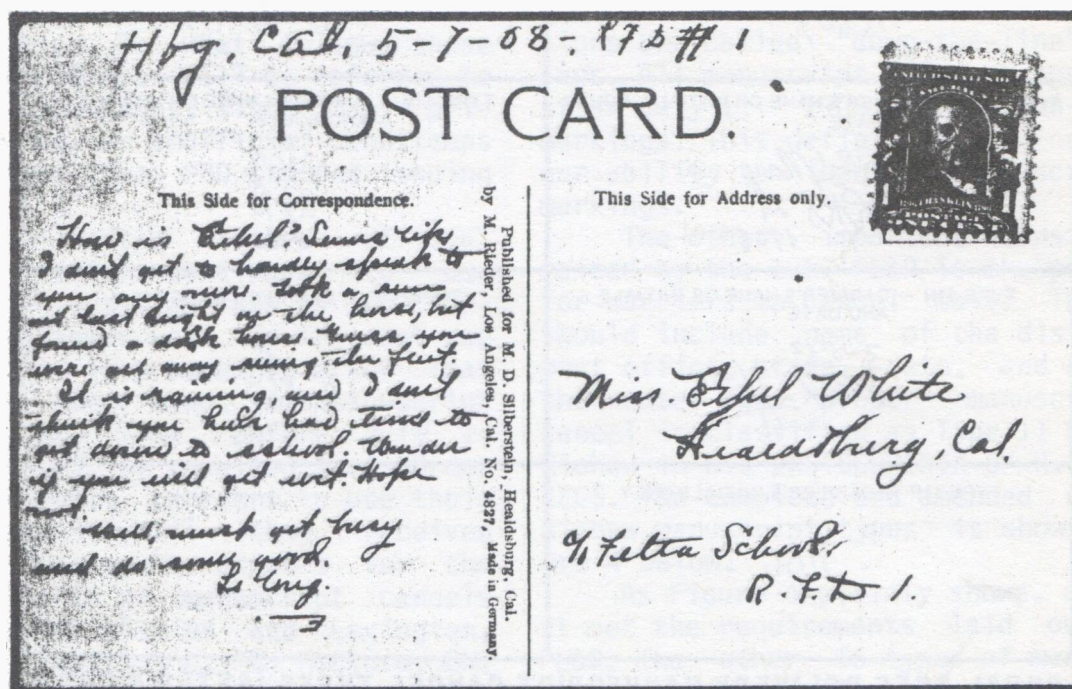 Hbg. Cal. 5-7-08- RFD# 1
POST CARD.
This Side for Correspondence.
How is "Ethel" Seems like
I don't get to hardly speak to
you any more. Took a run
out last night on the horse, but
found a dark house. Guess you
were all away
It is raining and I don't
think you have had time to
get down to school. Wonder
if you will get wet. Hope
not.
Well must get busy
and do some work
So long.
Published for M. D. Silberstein, Healdsburg, Cal.
by M. Rieder, Los Angeles, Cal. No. 4827. Made in Germany.
This Side for Address only.
Miss Ethel White
Healdsburg, Cal.
c/o Felta School.
R. F. D. 1